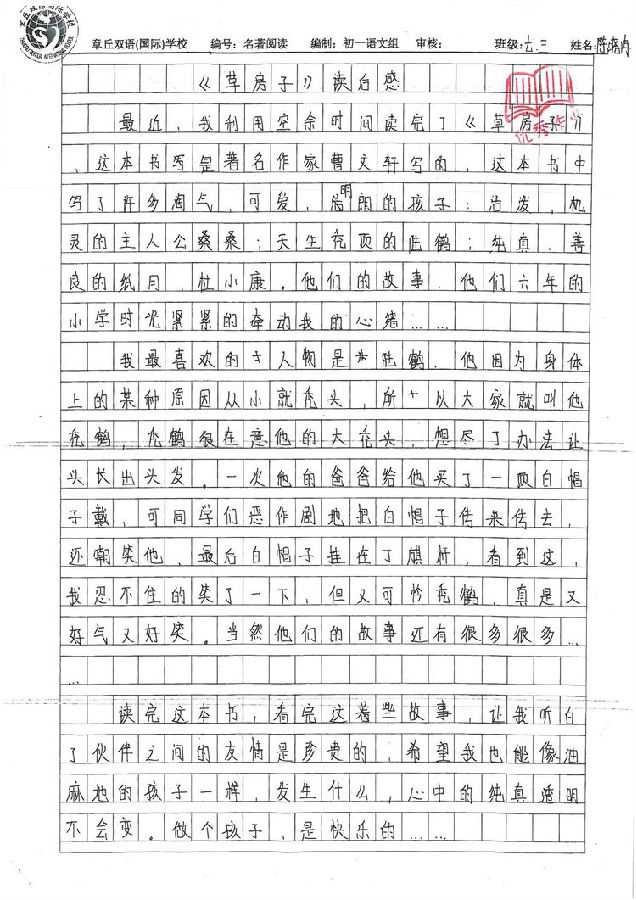 章丘双语(国际)学校 编号:名著阅读 编制:初一语文组 审核: 班级:六.三 姓名:陈
《草房子》读后感
优秀作业
最近,我利用空余时间读完了《草房子》
,这本书写是著名作家曹文轩写的,这本书中
写了许多淘气,可爱,明朗的孩子:活泼,机
灵的主人公桑桑;天生秃顶的陆鹤;纯真、善
良的纸月、杜小康。他们的故事、他们六年的
小学时光紧紧的牵动我的心绪……
我最喜欢的人物是秃鹤、他因为身体
上的某种原因从小就秃头,所以大家就叫他
秃鹤,秃鹤很在意他的大秃头,想尽了办法让
头长出头发。一次他的爸爸给他买了一顶白帽
子戴,可同学们恶作剧地把白帽子传来传去,
还嘲笑他,最后白帽子挂在了旗杆,看到这,
我忍不住的笑了一下,但又可怜秃鹤,真是又
好气又好笑。当然他们的故事还有很多很多…
…
读完这本书,看完这着些故事,让我明白
了伙伴之间的友情是珍贵的,希望我也能像油
麻地的孩子一样,发生什么,心中的纯真透明
不会变。做个孩子,是快乐的……